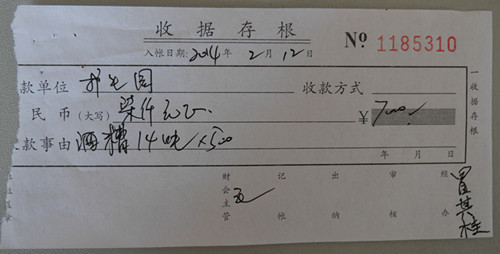 收据存根
入帐日期: 2014年 2月 12日 № 1185310
款单位 收款方式
民币(大写) 柒仟元正. ¥ 7000
款事由 酒糟14吨×500
年 月 日
财会主管 记帐 出纳 审核 经办
一收据存根